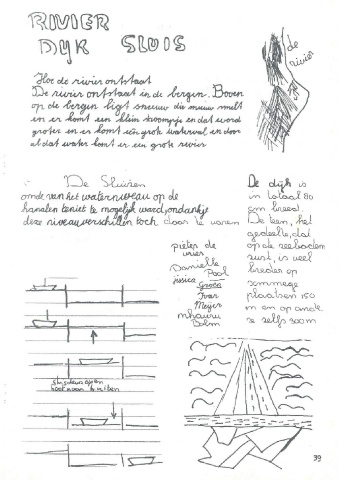 RIVIER
DYK SLUIS
de
rivier
Hoe de rivier ontstaat
De rivier ontstaat in de bergen. Boven
op de bergen ligt sneeuw die sneeuw smelt
en er komt een klein stroompje en dat word
groter en er komt een grote waterval en door
al dat water komt er een grote rivier
De Sluizen
omde van het waterniveau op de
kanalen teniet te mogelijk ward, ondankzij
deze niveauverschillen toch door te varen
De dijk is
in totaal 80
cm breed.
De teen, het
gedeelte, dat
op de zeebodem
rust, is veel
breder op
sommege
plaatsen 150
m en op ande
re zelfs 300m
pieter de
vries
Danielle
Pool
jisica
Groen
Ivar
Meijer
Dolm
sluisdeurs open
39